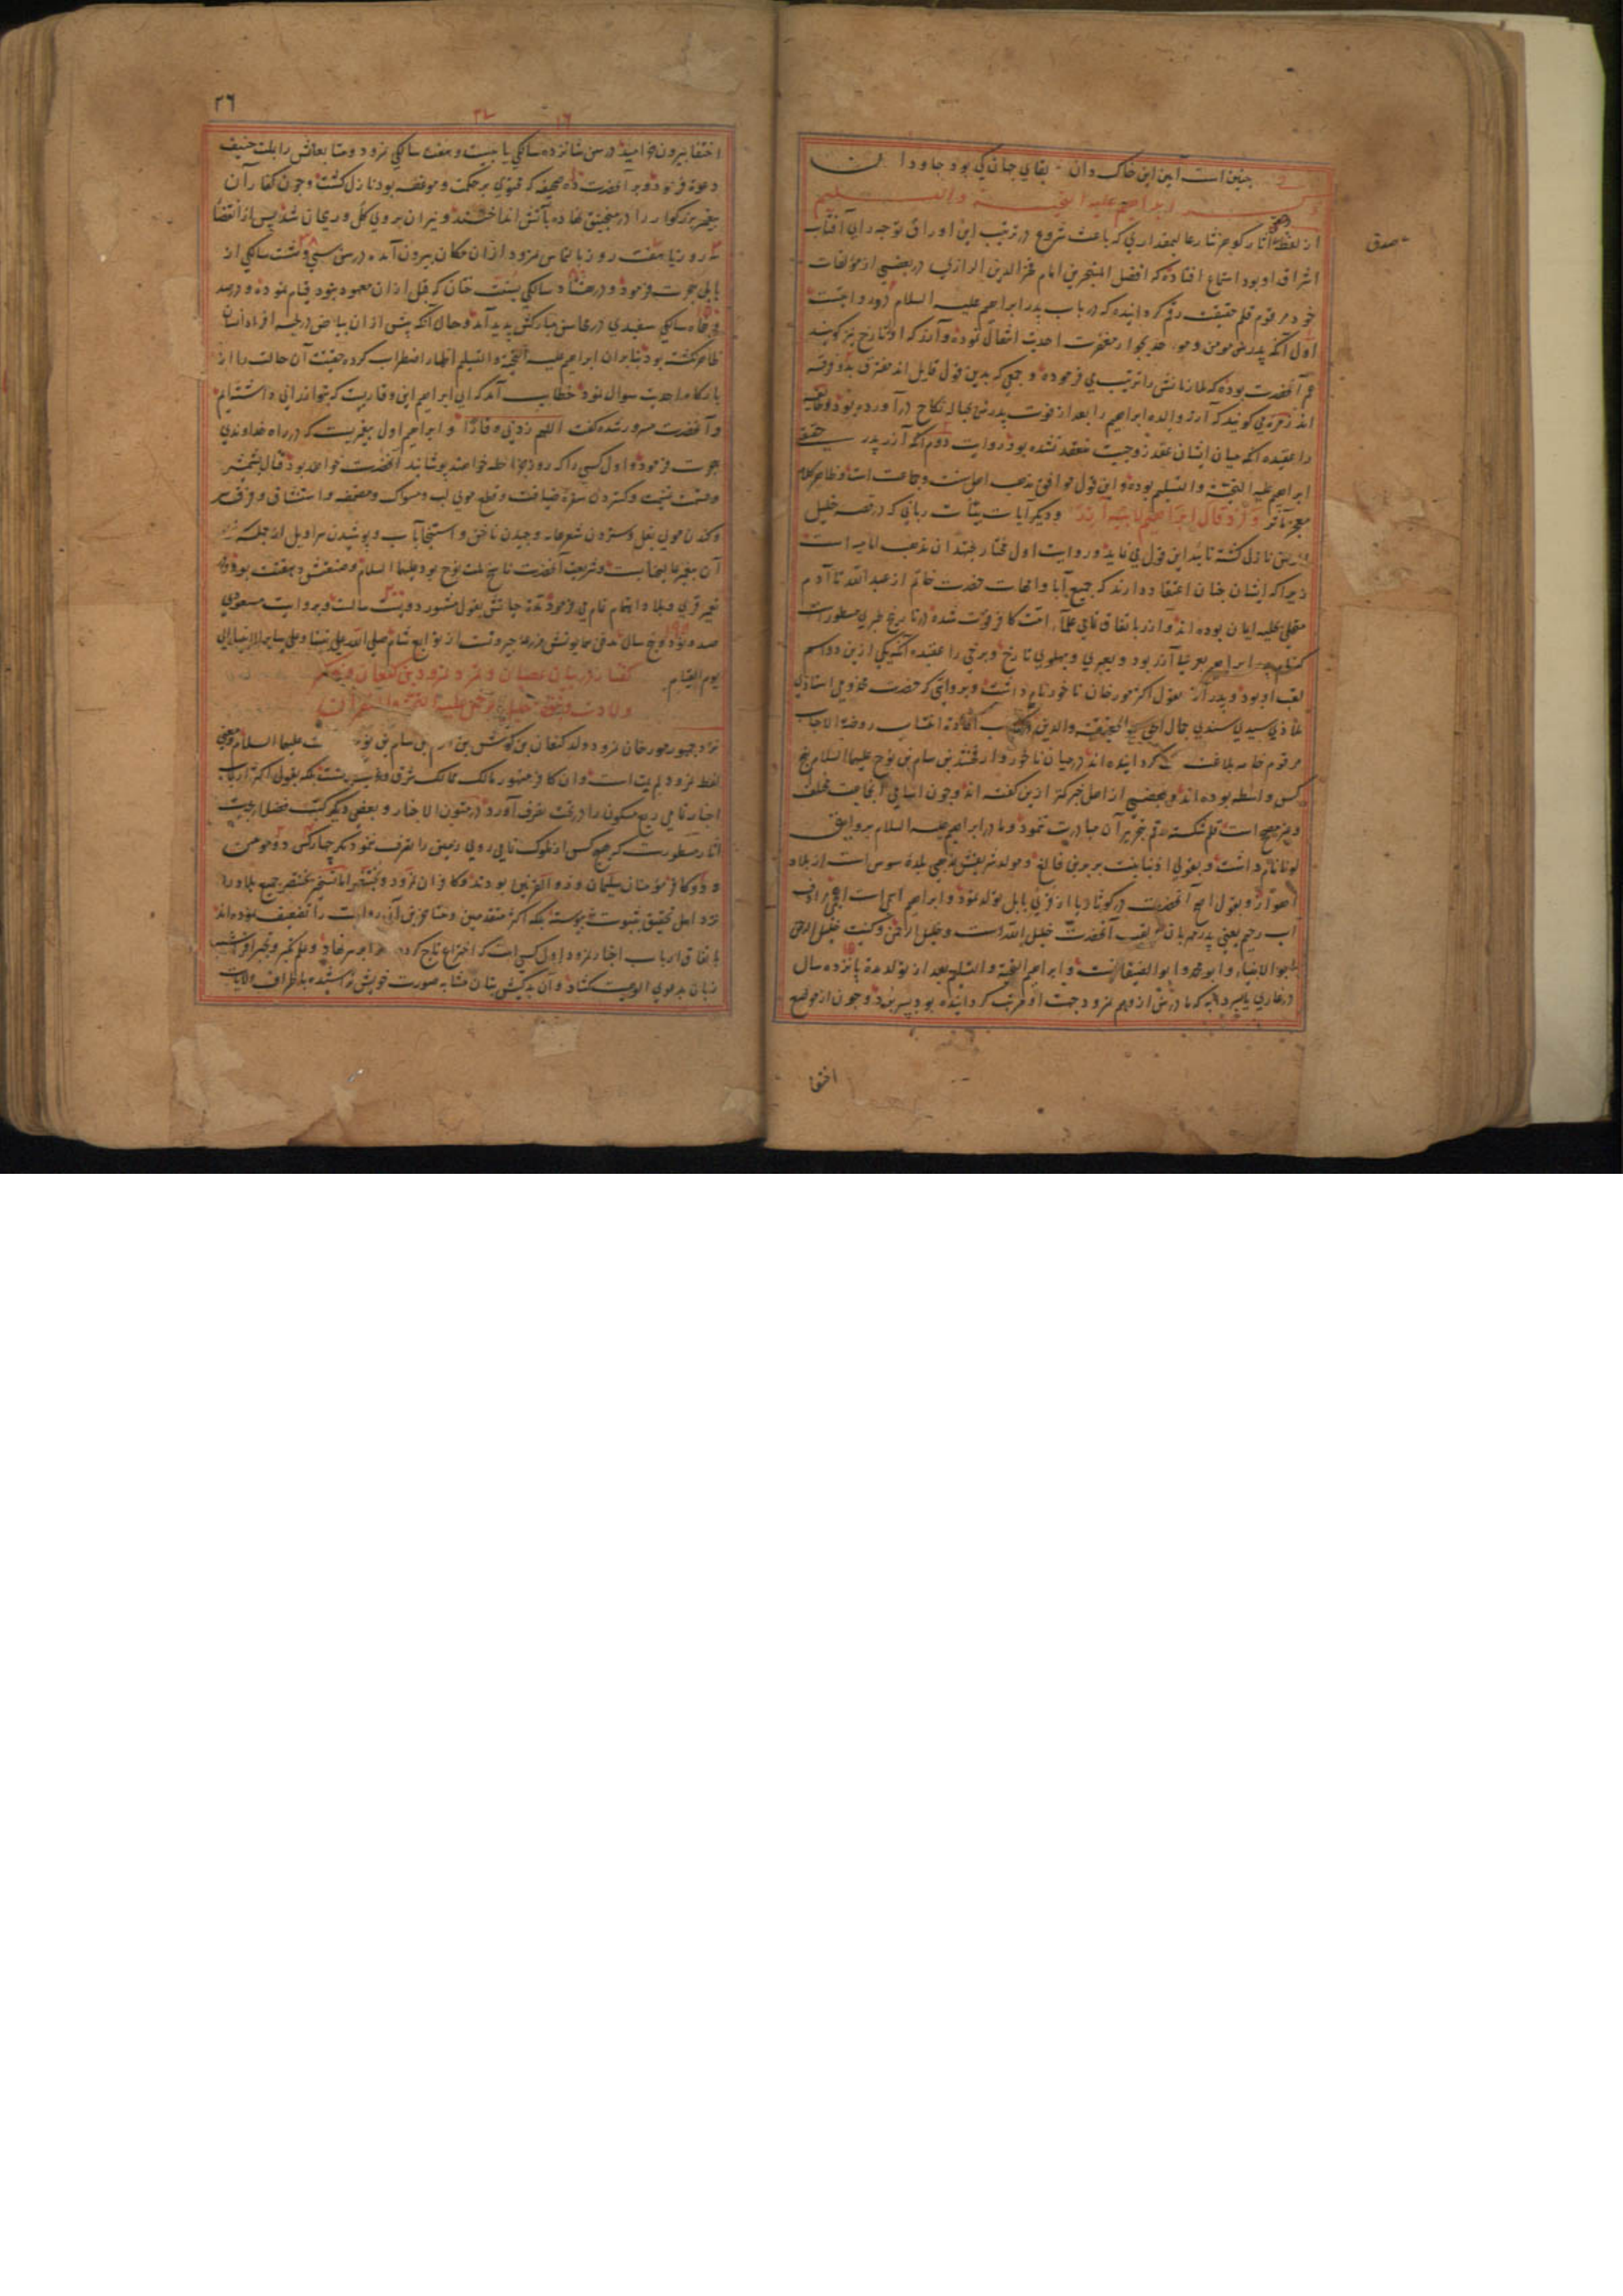 چنین است آیین این خاک دان بقای جهان کی بود جاودان
ذکر ابراهیم علیه التحیة والتسلیم
از لفظ آثار گوهر نثار عالیمقداری که باعث شروع در ترتیب این اوراق توجه رای آفتاب
صدق
اشراق او بود استماع افتاده که افضل المتبحرین امام فخر الدین الرازی در بعضی از مؤلفات
خود مرقوم قلم حقیقت رقم گردانیده که در باب پدر ابراهیم علیه السلام دو روایتست
اول آنکه پدرش مومن و موحد بجوار مغفرت احدیت انتقال نموده و آزر که او را تارخ نیز گویند
عم آنحضرت بوده که ملازمانش را تربیت می فرموده و جمعی که بدین قول قایل اند متفرق بدو فرقه
اند زمره می گویند که آزر والده ابراهیم را بعد از فوت پدرش بحباله نکاح در آورده بود و طایفه
را عقیده آنکه میان ایشان عقد زوجیت منعقد نشده بود روایت دوم آنکه آزر پدر حقیقی
ابراهیم علیه التحیة والتسلیم بوده و این قول موافق مذهب اهل سنت و جماعت است و ظاهر کلام
معجز تأثر وَاِذْ قالَ اِبْراهیمُ لِاَبیهِ آزَرَ و دیگر آیات بینات ربانی که در قصه خلیل
نازل گشته تائید این قول می نماید و روایت اول مختار مجتهدان مذهب امامیه است
زیرا که ایشان چنان اعتقاد دارند که جمیع آبا و امهات حضرت خاتم از عبد الله تا آدم
متحلی بحلیه ایمان بوده اند و آزر باتفاق تمامی علماء امت کافر فوت شده در تاریخ طبری مسطورست
که نام پدر ابراهیم بعربی آزر بود و بعبری و پهلوی تارخ و برخی را عقیده آنکه یکی ازین دو اسم
لقب او بود و پدر آزر بقول اکثر مورخان ناخور نام داشت و بروایتی که حضرت مخدومی استاذی
ملاذی سیدی سندی جمال الحق والحقیقة والدین در کتاب افادت انتساب روضة الاحباب
مرقوم خامه بلاغت گردانیده اند در میان ناخور و ارفخشد بن سام بن نوح علیهما السلام پنج
کس واسطه بوده اند و بعضی از اهل خبر کمتر ازین گفته اند و چون اسامی آنجماعت مختلف
و غیر مصحح است قلم شکسته رقم بتحریر آن مبادرت ننمود و مادر ابراهیم علیه السلام بروایتی
لونا نام داشت و بقولی ادنیا بنت بربربن فالغ و مولد شریفش بمذهبی بلده سوس است از بلاد
اهواز و بقول اصح آنحضرت در کوثا ربا از قری بابل تولد نمود و ابراهیم اسمی است اعجمی مرادف
اب رحیم یعنی پدر مهربان لقب آنحضرت خلیل الله است و خلیل الرحمن و کنیت خلیل الرحمن
ابو الانبیاء و ابو محمد و ابو الضیفانست و ابراهیم علیه التحیة والتسلیم بعد از تولد مدة پانزده سال
در غاری بسر برد که مادرش از وهم نمرود جهت او مرتب گردانیده بود و چون از موضع
اختفا
٢٦
اختفا بیرون خرامید در سن شانزده سالگی یا بیست و هفت سالگی نمرود و متابعانش را بملت حنیف
دعوة فرمود و بر آنحضرت ده صحیفه که محتوی بر حکمت و موعظه بود نازل گشت و چون کفار آن
پیغمبر بزرگوار را در منجنیق نهاده بآتش انداختند و نیران بر وی گل و ریحان شد پس از انقضاء
سه روز یا هفت روز بالتماس نمرود از آن مکان بیرون آمده در سن سی و هشت سالگی از
بابل هجرت فرمود و در هشتاد سالگی بسنت ختان که قبل از آن معهود نبود قیام نموده و در صد
و پنجاه سالگی سفیدی در محاسن مبارکش پدید آمد و حال آنکه پیش از آن بیاض در لحیه افراد انسان
ظاهر نگشته بود بنابر آن ابراهیم علیه التحیة والتسلیم اظهار اضطراب کرده حقیقت آن حالت را از
بارگاه احدیت سوال نمود خطاب آمد که ای ابراهیم این وقاریست که بتو ارزانی داشته ایم
و آنحضرت مسرور شده گفت اللهم زدنی وقارا و ابراهیم اول پیغمبریست که در راه خداوندی
هجرت فرموده و اول کسی را که روز جزا حله خواهند پوشانید آنحضرت خواهد بود و قتال بشمشیر
و قسمت غنیمت و گستردن سفره ضیافت و قطع موی لب و مسواک و مضمضه و استنشاق و فرق سر
و کندن موی بغل و ستردن شعر عانه و چیدن ناخن و استنجا بآب و پوشیدن سراویل از جمله سنن
آن پیغمبر عالیجنابست و شریعت آنحضرت ناسخ ملت نوح بود علیهما السلام و صنعتش دهقنت بود و در
تعمیر قری و بلاد اهتمام تمام می فرمود مدت حیاتش بقول مشهور دویست سالست و بروایت مسعودی
صد و نود و پنج سال مدفن همایونش مزرعه حیرونست از توابع شام صلی الله علی نبینا و علی سایر الانبیاء الی
یوم القیام گفتار در بیان عصیان و تمرد نمرود بن کنعان و ذکر
ولادت و نشو خلیل الرحمن علیه التحیة والغفران
نزد جمهور مورخان نمرود ولد کنعان بن کوش بن ارم بن سام بن نوح است علیهما السلام و معنی
لفظ نمرود لم یمت است و آن کافر مقهور مالک ممالک شرق و غرب گشت بلکه بقول اکثر ارباب
اخبار تمامی ربع مسکون را در تحت تصرف آورد در متون الاخبار و بعضی دیگر کتب فضلاء بلاغت
آثار مسطورست که هیچ کس از ملوک تمامی روی زمین را تصرف ننمود مگر چهار کس دو مومن
و دو کافر مؤمنان سلیمان و ذو القرنین بودند و کافران نمرود و بختنصر اما تسخیر بختنصر جمیع بلاد را
نزد اهل تحقیق بثبوت نپیوسته بلکه اکثر متقدمین و متاخرین آن روایت را تضعیف نموده اند
باتفاق ارباب اخبار نمرود اول کسی است که اختراع تاج کرده بر سر نهاد و علم تکبر و تجبر افراشته
زبان بدعوی الوهیت گشاد و آن بدکیش بتان مشابه صورت خویش تراشیده باطراف ولایات